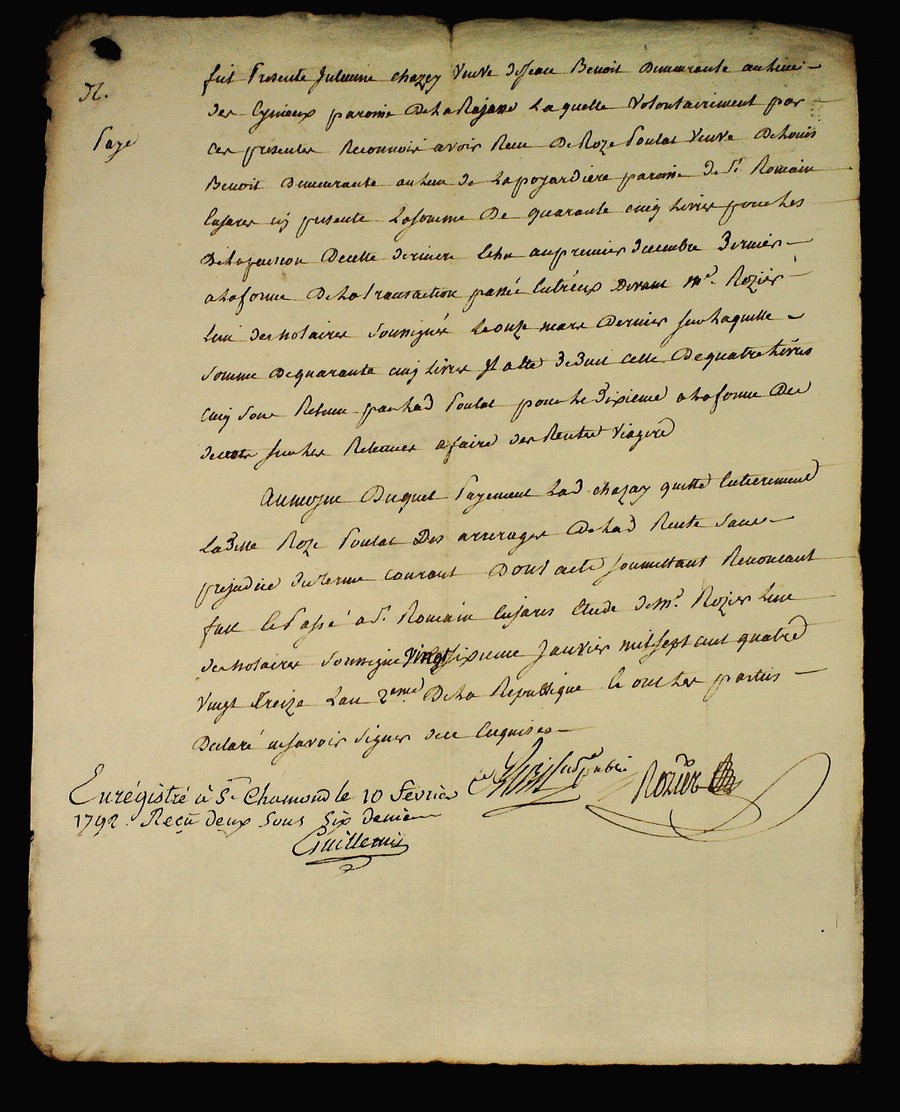 N.
Paye
fut Presente Julienne chazey veuve de Jean Benoit Demeurante au lieu
des Eynieux paroisse De La Rajasse Laquelle volontairement par
ces presentes Reconnois avoir Receu De Roze Poulat Veuve De Louis
Benoit Demeurante au lieu de La pojardiere paroisse de St. Romain
Lajares icy presente La somme De quarante cinq Livres pour les
De La pension De celle derniere Echu au premier decembre Dernier
a La forme De La transaction passée Entreux Devant Mr. Rozier
Lun des notaires soussignés Le onze mars Dernier sur Laquelle
somme De quarante cinq Livres Il a été deduit celle De quatre Livres
cinq sous Retenu par Lad Poulat pour Le Dixieme a La forme Des
decrets sur Les Retenues a faire des Rentes Viagere
Au moyen Duquel Payement Lad. chazay quitte Entierement
Ladette Roze Poulat Des arrerages De Lad Rente sans
prejudice du terme courant Dont acte soumettant Renoncant
fait Et Passé a St. Romain Lajares Etude de Mr. Rozier Lun
des notaires soussigne vingt sixieme Janvier mil sept cent quatre
vingt treize Lan 2eme. De La Republique Et ont Les parties
Declaré ne savoir signer de ce Enquises
Rozier
Enrégistré à St. Chamond le 10 Février
1792. Reçu deux sous six deniers
Guillemin